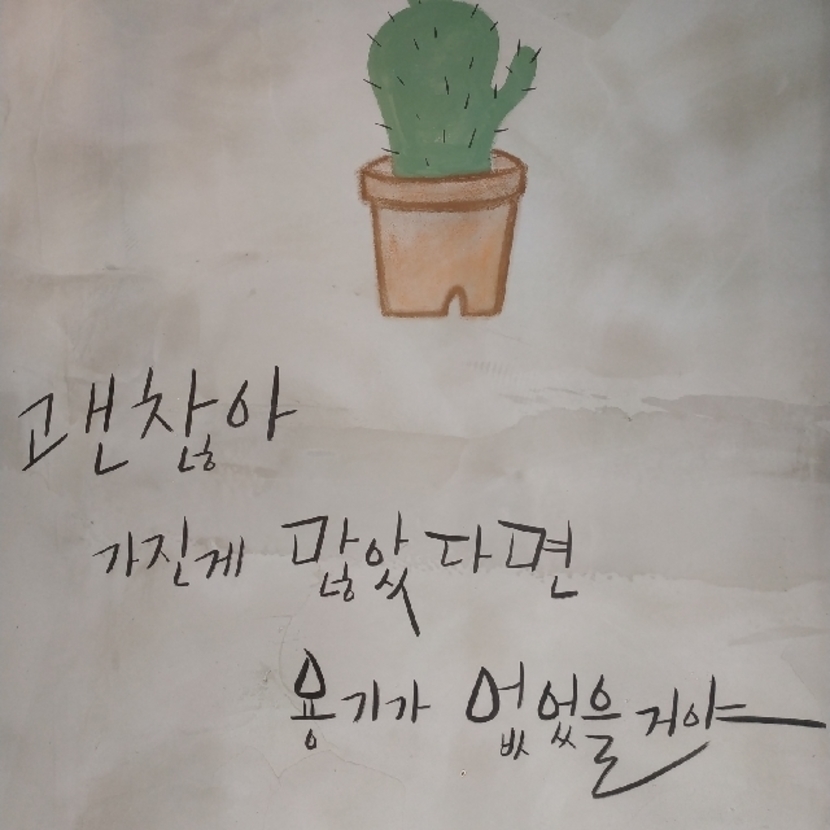 괜찮아
가진게 많았다면
용기가 없었을 거야